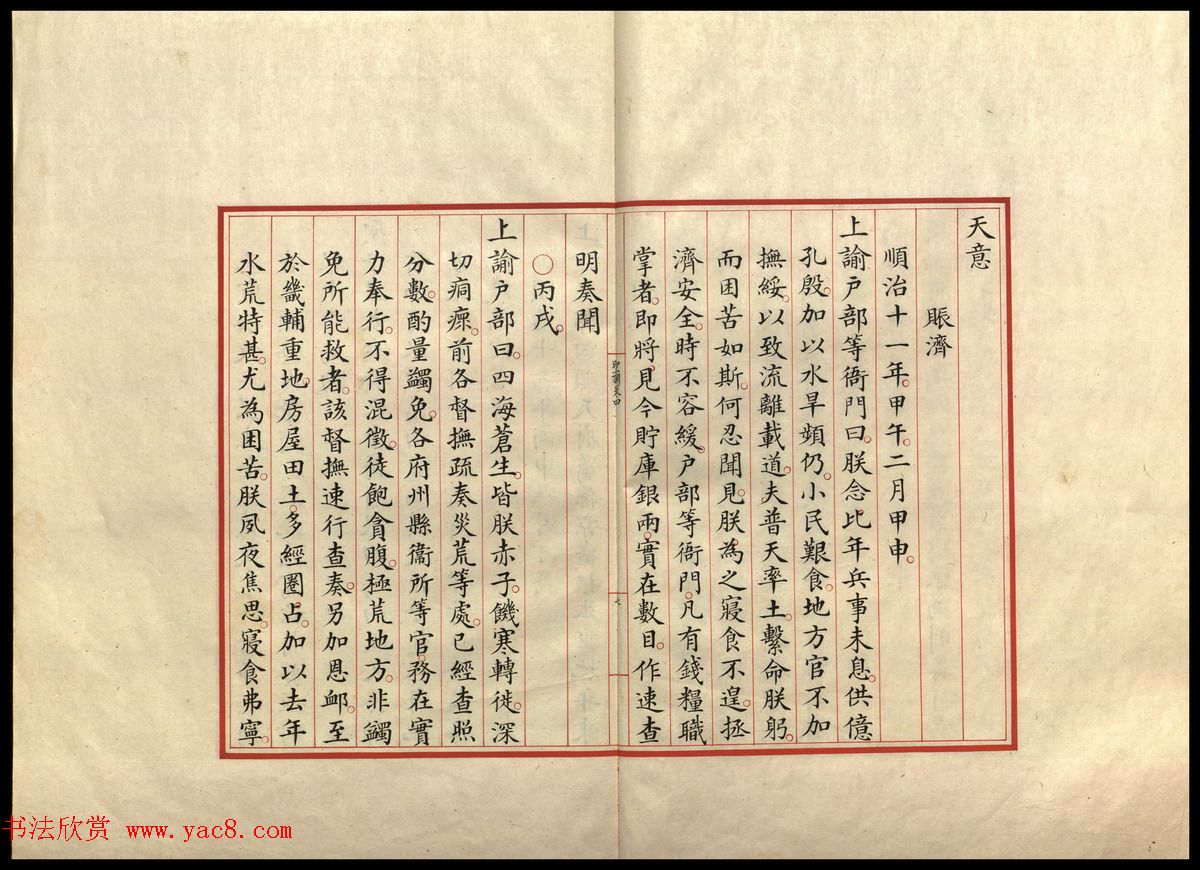 天意
賑濟
順治十一年。甲午。二月甲申。
上諭戶部等衙門曰。朕念比年兵事未息。供億
孔殷。加以水旱頻仍。小民艱食。地方官不加
撫綏。以致流離載道。夫普天率土。繫命朕躬。
而困苦如斯。何忍聞見。朕為之寢食不遑。拯
濟安全。時不容緩。戶部等衙門。凡有錢糧職
掌者。即將見今貯庫銀兩。實在數目。作速查
聖訓卷四
七
明奏聞
○丙戌。
上諭戶部曰。四海蒼生。皆朕赤子。饑寒轉徙。深
切痌瘝。前各督撫疏奏災荒等處。已經查照
分數。酌量蠲免。各府州縣衞所等官。務在實
力奉行。不得混徵。徒飽貪腹。極荒地方。非蠲
免所能救者。該督撫速行查奏。另加恩卹。至
於畿輔重地。房屋田土。多經圈占。加以去年
水荒特甚。尤為困苦。朕夙夜焦思。寢食弗寧。
书法欣赏 www.yac8.com